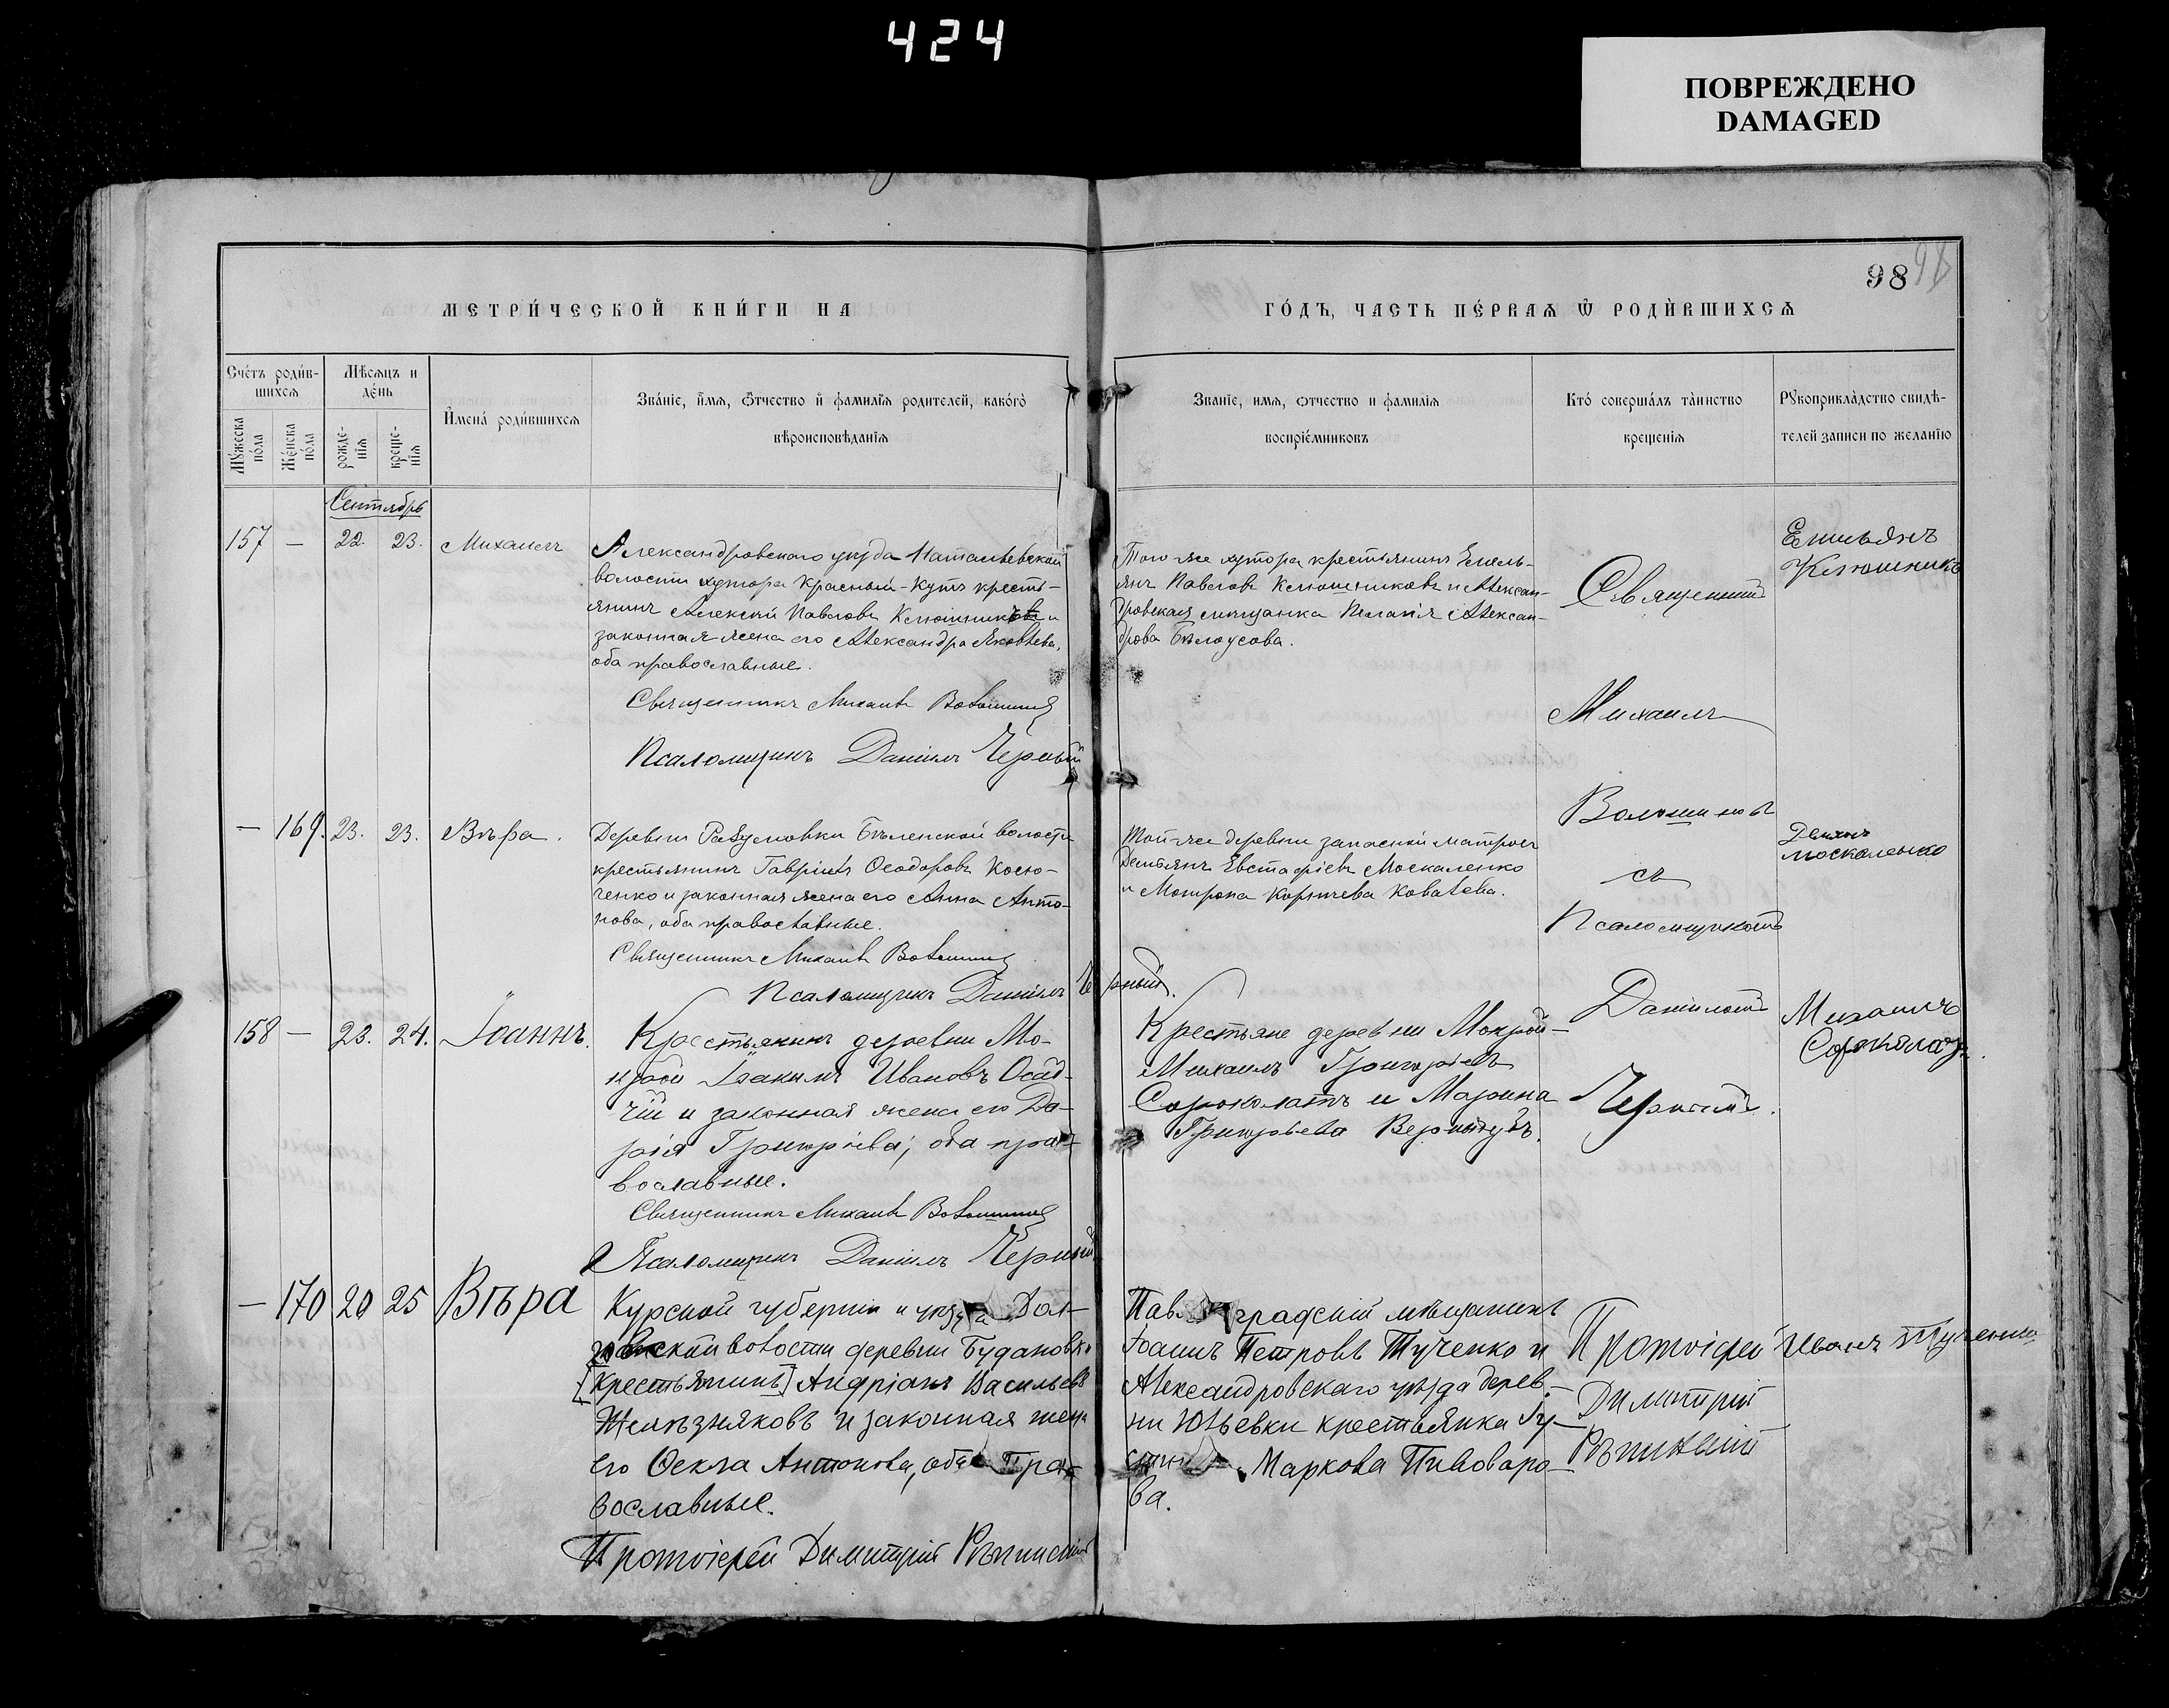 424
ПОВРЕЖДЕНО
DAMAGED
98
МЕТРИ́ЧЕСКОЙ КНИ́ГИ НА
ГО́ДЪ, ЧАСТЬ ПЕ́РВАѦ Ѿ РОДИ́ВШИХСѦ
Сче́тъ роди́в-
шихсѧ
Мѣ́сѧцъ и
де́нь
Мꙋ́жеска
по́ла
Же́нска
по́ла
рожде-
нїѧ
креще-
нїѧ
И҆мена́ роди́вшихсѧ
Зва́нїе, и҆́мѧ, ѻ҆́тчество и҆ фами́лїѧ родителей, како́гѡ
вѣроисповѣ́данїѧ
Званїе, имѧ, ѻтчество и фамилїѧ
воспрїе́мниковъ
Кто́ соверша́лъ та́инство
креще́нїѧ
Рꙋкоприкла́дство свидѣ́-
телей записи по желанїю
Сентябрь
157 — 22. 23. Михаилъ
Александровскаго уѣзда Натальевской
волости хутора Красный-Кутъ кресть-
янинъ Алексѣй Павловъ Ключниковъ и
законная жена его Александра Яковлева,
оба православные.
Священникъ Михаилъ Волошиновъ
Псаломщикъ Даніилъ Черный
Того-же хутора крестьянинъ Емель-
янъ Павловъ Ключниковъ и Алексан-
дровская мѣщанка Пелагія Алексан-
дрова Бѣлоусова.
Священникъ
Михаилъ
Волошиновъ
съ
Псаломщикомъ
Даніиломъ
Чернымъ.
Емельянъ
Ключников
— 169. 23. 23. Вѣра.
Деревни Разумовки Бѣленской волости
крестьянинъ Гавріилъ Ѳеодоровъ Косю-
ченко и законная жена его Анна Анто-
нова, оба православные.
Священникъ Михаилъ Волошиновъ
Псаломщикъ Даніилъ Черный.
Той-же деревни запасной матросъ
Демьянъ Евстафіевъ Москаленко
и Мотрона Корнѣева Ковалева.
Демянъ
Москаленко
158 — 23. 24. Іоаннъ.
Крестьянинъ деревни Мо-
крой Іоакимъ Ивановъ Осад-
чій и законная жена его Да-
рія Григоріева; оба пра-
вославные.
Священникъ Михаилъ Волошиновъ
Псаломщикъ Даніилъ Черный
Крестьяне деревни Мокрой-
Михаилъ Григорьевъ
Сороколатъ и Марина
Григорьева Вернидубъ.
Михаилъ
Сороколатъ.
— 170 20 25 Вѣра
Курской губерніи и уѣзда Дол-
скои волости деревни Будановки
[крестьянинъ] Андріанъ Васильевъ
Желѣзняковъ и законная жена
его Ѳекла Антонова, оба Пра-
вославные.
Протоіерей Димитрій Рѣпинскій
Павлоградскій мѣщанинъ
Іоаннъ Петровъ Тученко и
Александровскаго уѣзда дерев-
ни Юльевки крестьянка Іу-
Маркова Пивоваро-
ва.
Протоіерей
Димитрій
Рѣпинскій
Иванъ Тученко